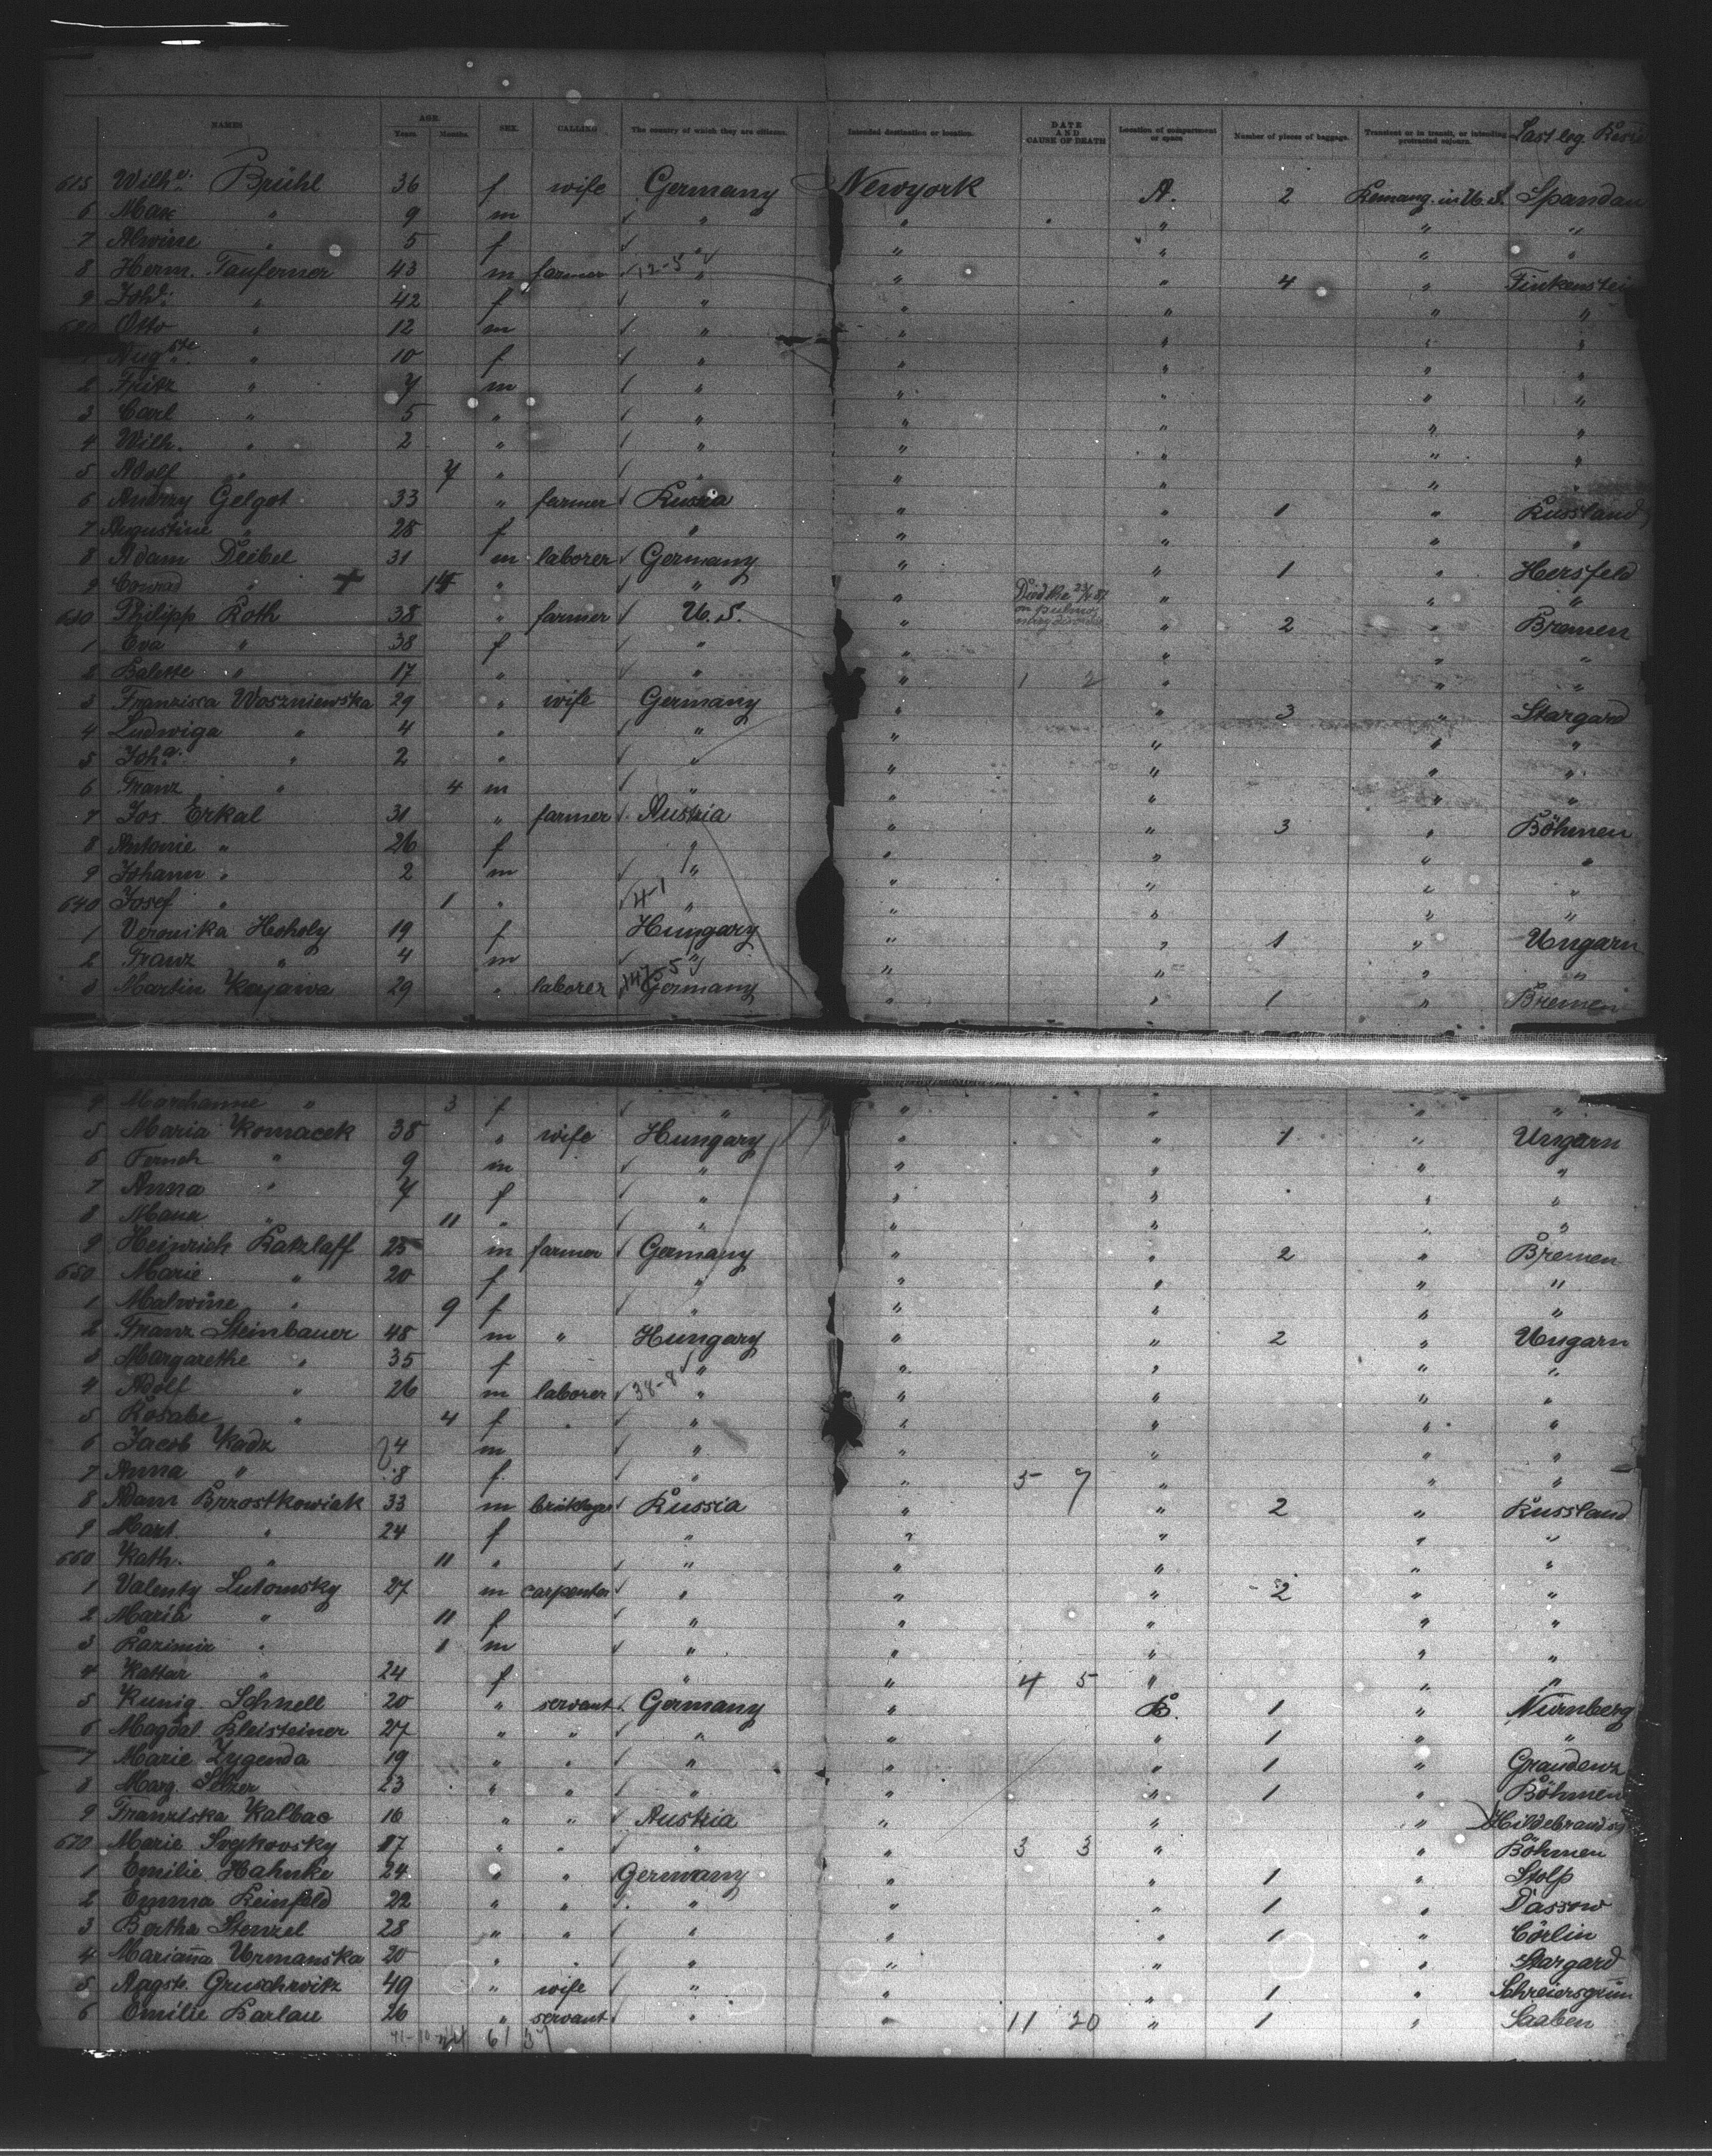 NAMES AGE. Years. Months. SEX. CALLING The country of which they are citizens. Intended destination or location. DATE AND CAUSE OF DEATH Location of compartment or space. Number of pieces of baggage. Transient or in transit, or intending protracted sojourn. Last leg. Resid
615 Wilh. Brühl 36 f wife Germany Newyork A. 2 Remang. in U.S. Spandau
6 Max " 9 m " " " " "
7 Alwine " 5 f " " " " "
8 Herm. Tauferner 43 m farmer 12-5 " " " 4 " Finkenstein
9 Johd. " 42 f " " " " "
620 Otto " 12 m " " " " "
Augste " 10 f " " " " "
2 Fritz " 7 m " " " " "
3 Carl " 5 " " " " " "
4 Wilh. " 2 " " " " " "
5 Adolf " 7 " " " " " "
6 Andrzy Gelgot 33 " farmer Russia " " 1 " Russland
7 Augustine " 28 f " " " " "
8 Adam Deibel 31 m laborer Germany " " 1 " Hersfeld
9 Conrad " + 1 " " " Died the " " "
630 Philipp Roth 38 " farmer U.S. " " 2 " Bremen
1 Eva " 38 f " " " " "
2 Babette " 17 " " " 1 2 " " "
3 Franzisca Woszniewska 29 " wife Germany " " 3 " Stargard
4 Ludwiga " 4 " " " " " "
5 Joha. " 2 " " " " " "
6 Franz " 4 m " " " " "
7 Jos Erkal 31 " farmer Austria " " 3 " Böhmen
8 Antonie " 26 f " " " " "
9 Johann " 2 m " " " " "
640 Josef " 1 " 4-1 " " " " "
1 Veronika Hoholy 19 f Hungary " " 1 " Ungarn
2 Franz " 4 m " " " " "
3 Martin Kajawa 29 " laborer Germany " " 1 " Bremen
4 Marchanne " 3 f " " " " "
5 Maria Komacek 38 " wife Hungary " " 1 " Ungarn
6 Fernch " 9 m " " " " "
7 Anna " 4 f " " " " "
8 " 11 " " " " " "
9 Heinrich Ratzlaff 25 m farmer Germany " " 2 " Bremen
650 Marie " 20 f " " " " "
1 Malwine " 9 f " " " " "
2 Franz Steinbauer 48 m " Hungary " " 2 " Ungarn
3 Margarethe " 35 f " " " " "
4 Adolf " 26 m laborer 38-8 " " " " "
5 Rosabe " 4 f " " " " "
6 Jacob Kadz 4 m " " " " "
7 Anna " 8 f " " 5 7 " " "
8 Adam Brzostkowiak 33 m Russia " " 2 " Russland
9 Mart. " 24 f " " " " "
660 Kath. " 11 " " " " " "
1 Valenty Lutomsky 27 m carpenter " " " 2 " "
2 Maria " 11 f " " " " "
3 Kazimir " 1 m " " " " "
4 Kattar " 24 f " " 4 5 " " "
5 Kunig. Schnell 20 " servant Germany " B. 1 " Nürnberg
6 Magdal. Kleisteiner 27 " " " " " 1 " "
7 Marie Zygenda 19 " " " " " 1 " Graudenz
8 Marg. Selzer 23 " " " " " 1 " Böhmen
9 Franziska Kalbac 16 " " Austria " " " Hildebrands
670 Marie Svykovsky 17 " " " " 3 3 " " Böhmen
1 Emilie Hahnke 24 " " Germany " " 1 " Stolp
2 Emma Reinfeld 22 " " " " " 1 " Dassow
3 Bertha Stenzel 28 " " " " " 1 " Cörlin
4 Marianna Urmanska 20 " " " " " " Stargard
5 Aagste. Gruschwitz 49 " wife " " " 1 " Schreiersgrün
6 Emilie Barlau 26 " servant " " 11 20 " 1 " Saaben
61 37